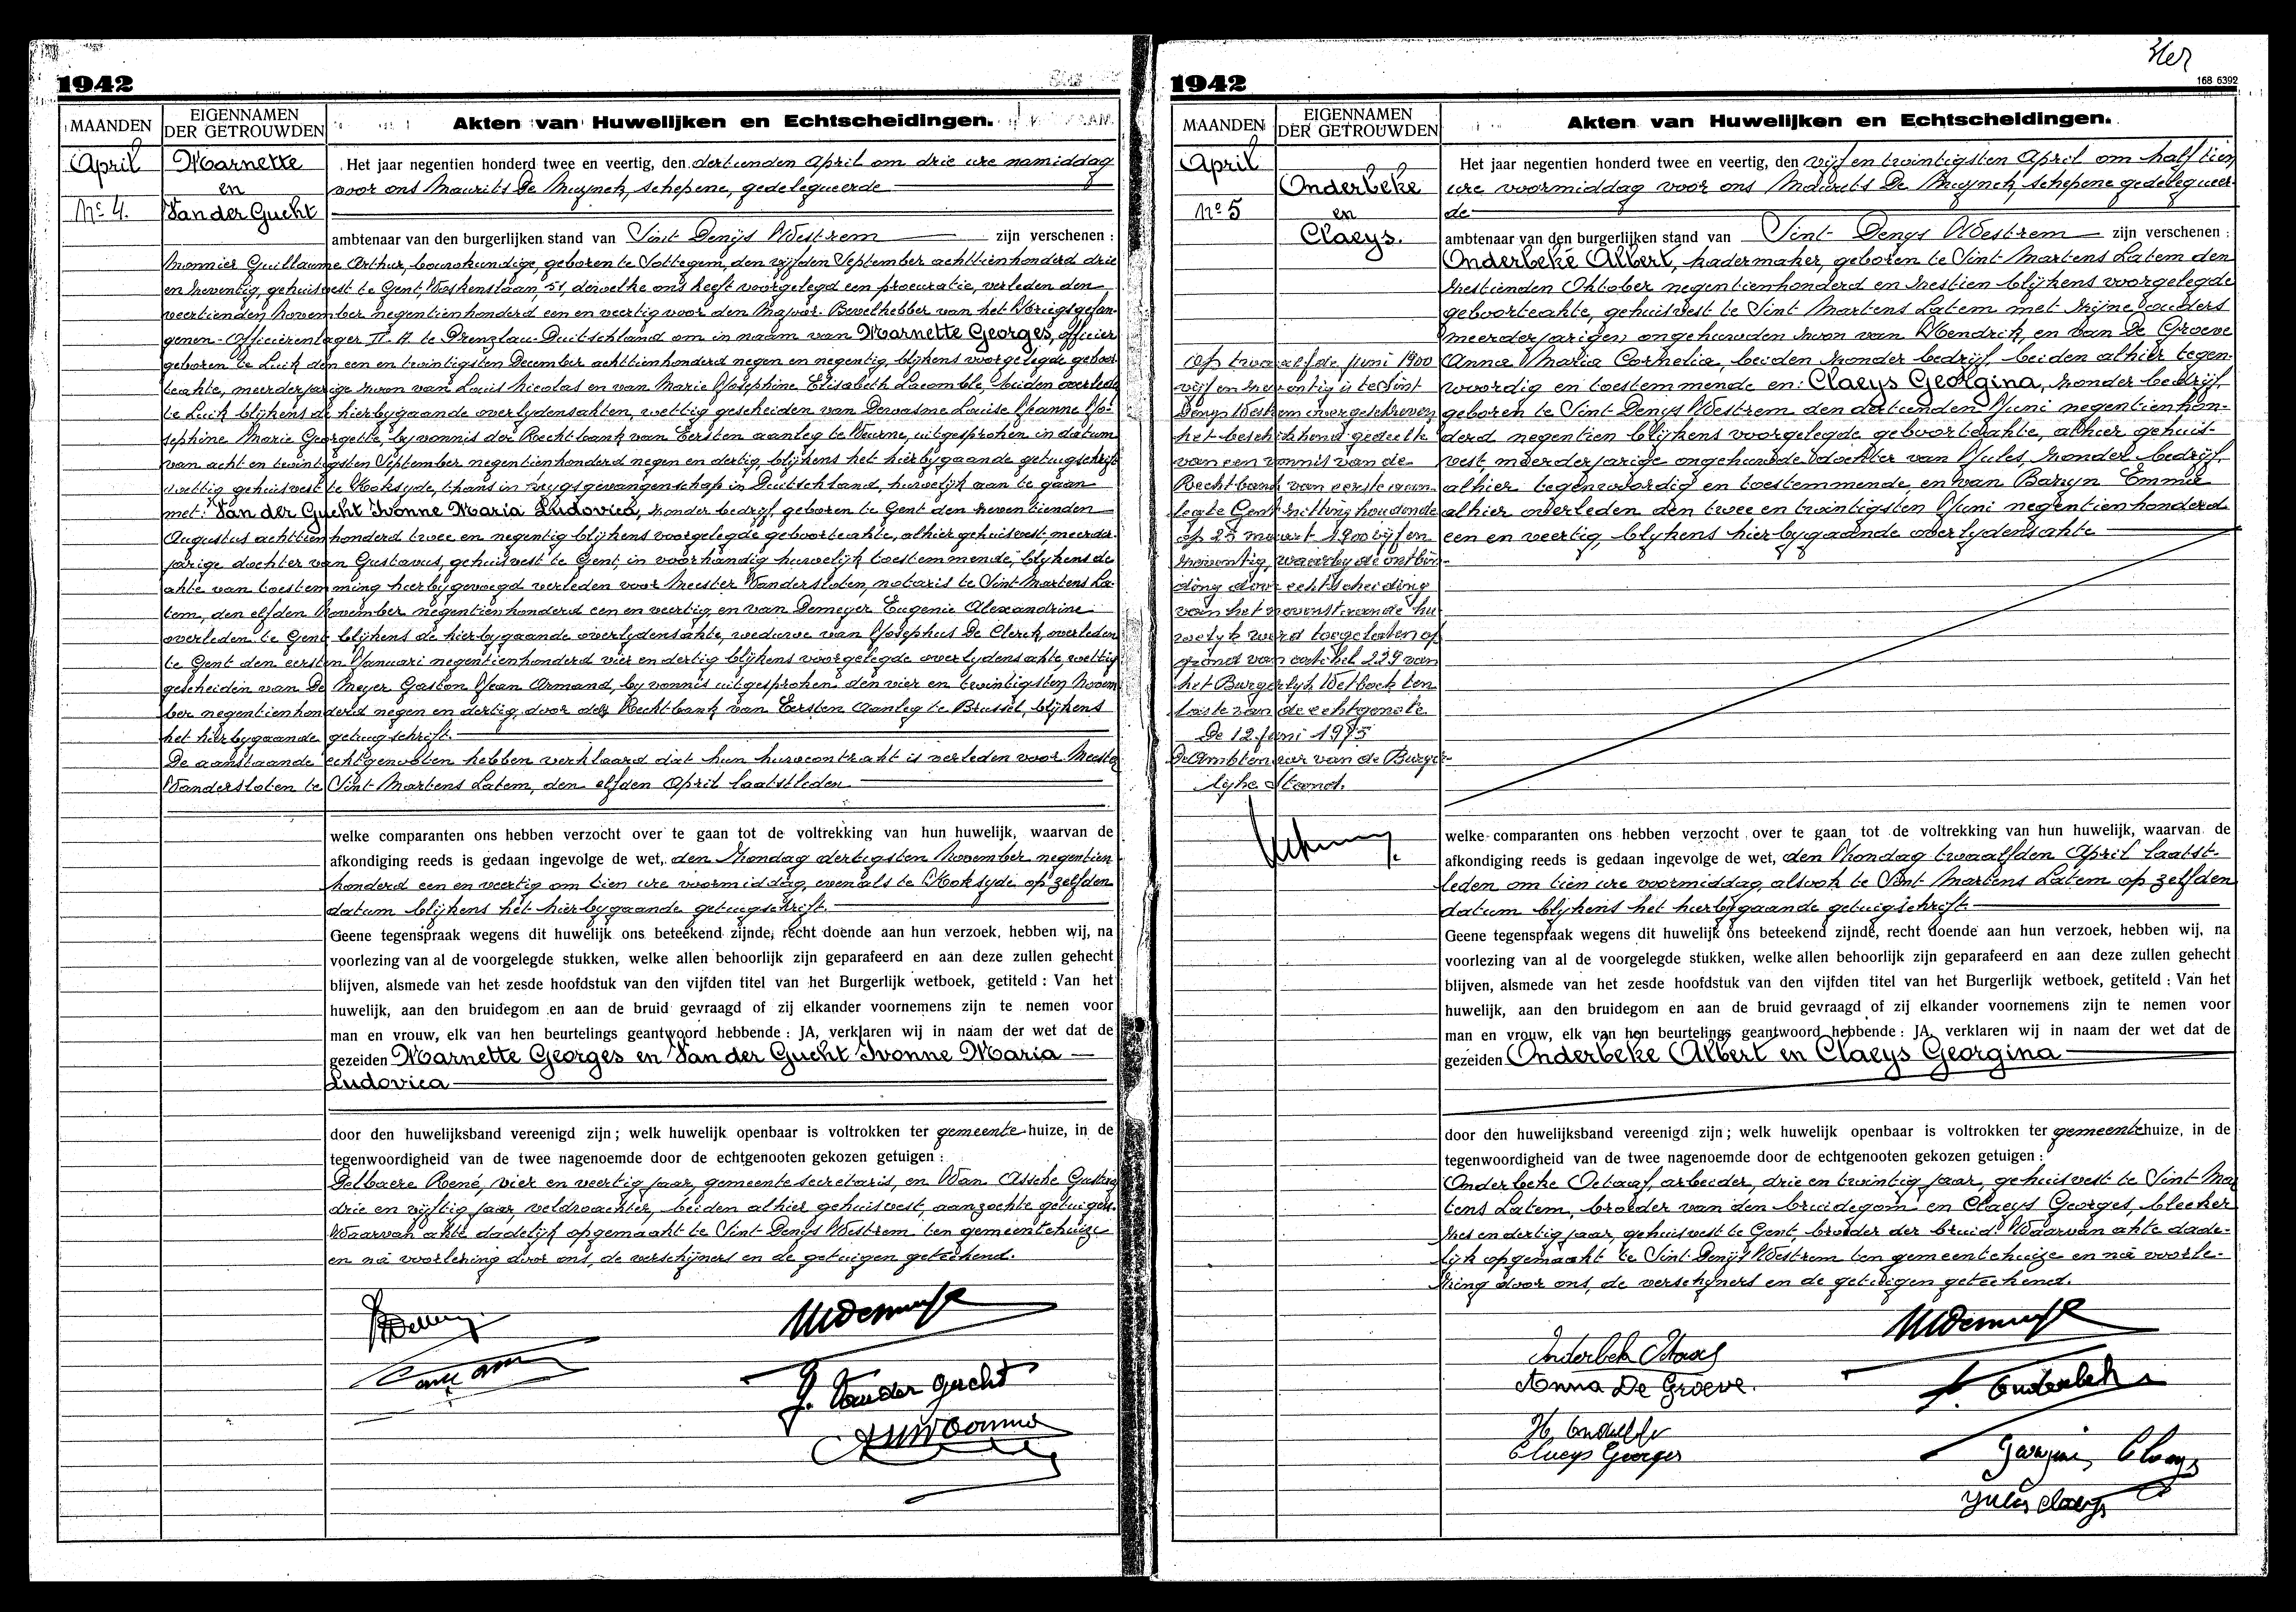 1942
MAANDEN
EIGENNAMEN
DER GETROUWDEN
Akten van Huwelijken en Echtscheidingen.
April
No 4.
Marnette
en
Van der Gucht
Het jaar negentien honderd twee en veertig, den dertienden April om drie ure namiddag
voor ons Maurits De Muynck, schepene, gedelegueerde
ambtenaar van den burgerlijken stand van Sint Denijs Westrem zijn verschenen :
Monnier Guillaume Arthur, bouwkundige, geboren te Sottegem, den vijfden September achttienhonderd drie
en zeventig, gehuisvest te Gent, Voskenslaan, 51, dewelke ons heeft voorgelegd een procuratie, verleden den
veertienden November negentienhonderd een en veertig voor den Majoor-Bevelhebber van het Krijgsgefan-
genen-Officierenlager II. A te Prenzlau-Duitschland om in naam van Marnette Georges, officier
geboren te Luik den een en twintigsten December achttienhonderd negen en negentig, blijkens voorgelegde geboor-
teakte, meerderjarige zoon van Louis Nicolas en van Marie Josephine Elisabeth Lacomble, beiden overleden
te Luik blijkens de hierbijgaande overlydensakten, wettig gescheiden van Dewasme Louise Jeanne Jo-
sephine Marie Georgette, by vonnis der Rechtbank van Eersten aanleg te Veurne, uitgesproken in datum
van acht en twintigsten September negentienhonderd negen en dertig blijkens het hierbygaande getuigschrift
wettig gehuisvest te Koksyde, thans in krygsgevangenschap in Duitschland, huwelijk aan te gaan
met: Van der Gucht Ivonne Maria Ludovica, zonder bedrijf, geboren te Gent den zeventienden
Augustus achttienhonderd twee en negentig blijkens voorgelegde geboorteakte, alhier gehuisvest, meerder-
jarige dochter van Gustavus, gehuisvest te Gent, in voorhandig huwelijk toestemmende, blijkens de
akte van toestemming hierbijgevoegd verleden voor Meester Vandersloten, notaris te Sint Martens La-
tem, den elfden November negentienhonderd een en veertig en van Demeyer Eugenie Alexandrine
overleden te Gent blijkens de hierbygaande overlydensakte, weduwe van Josephus De Clerck, overleden
te Gent den eersten Januari negentienhonderd vier en dertig blijkens voorgelegde overlydensakte, wettig
gescheiden van De Meyer Gaston Jean Armand, by vonnis uitgesproken den vier en twintigsten Novem-
ber negentienhonderd negen en dertig, door de Rechtbank van Eersten Aanleg te Brussel, blijkens
het hierbygaande getuigschrift.
De aanstaande echtgenooten hebben verklaard dat hun huwcontrakt is verleden voor Meester
Vandersloten te Sint Martens Latem, den elfden April laatstleden
welke comparanten ons hebben verzocht over te gaan tot de voltrekking van hun huwelijk, waarvan de
afkondiging reeds is gedaan ingevolge de wet, den Zondag dertigsten November negentien
honderd een en veertig om tien ure voormiddag, evenals te Koksyde op zelfden
datum blijkens het hierbygaande getuigschrift.
Geene tegenspraak wegens dit huwelijk ons beteekend zijnde, recht doende aan hun verzoek, hebben wij, na
voorlezing van al de voorgelegde stukken, welke allen behoorlijk zijn geparafeerd en aan deze zullen gehecht
blijven, alsmede van het zesde hoofdstuk van den vijfden titel van het Burgerlijk wetboek, getiteld : Van het
huwelijk, aan den bruidegom en aan de bruid gevraagd of zij elkander voornemens zijn te nemen voor
man en vrouw, elk van hen beurtelings geantwoord hebbende : JA, verklaren wij in naam der wet dat de
gezeiden Marnette Georges en Van der Gucht Ivonne Maria
Ludovica
door den huwelijksband vereenigd zijn ; welk huwelijk openbaar is voltrokken ter gemeente huize, in de
tegenwoordigheid van de twee nagenoemde door de echtgenooten gekozen getuigen :
Delbaere René, vier en veertig jaar, gemeentesecretaris, en Van Assche Gustaaf
drie en vijftig jaar, veldwachter, beiden alhier gehuisvest, aanzochte getuigen.
Waarvan akte dadelijk opgemaakt te Sint Denys Westrem ten gemeentehuize
en na voorlezing door ons, de verschijners en de getuigen geteekend.
Y. Van der Gucht
1942
Ster
168 6392
MAANDEN
EIGENNAMEN
DER GETROUWDEN
Akten van Huwelijken en Echtscheidingen.
April
No 5
Onderbeke
en
Claeys.
Het jaar negentien honderd twee en veertig, den vijf en twintigsten April om half tien
ure voormiddag voor ons Maurits De Muynck, schepene gedelegueer-
de
ambtenaar van den burgerlijken stand van Sint Denys Westrem zijn verschenen :
Onderbeke Albert, kadermaker, geboren te Sint Martens Latem den
zestienden Oktober negentienhonderd en zestien blijkens voorgelegde
geboorteakte, gehuisvest te Sint Martens Latem met zijne ouders
meerderjarigen ongehuwden zoon van Hendrik, en van De Groeve
Anna Maria Cornelia, beiden zonder bedrijf, beiden alhier tegen-
woordig en toestemmende en: Claeys Georgina, zonder bedrijf,
geboren te Sint Denys Westrem den dertienden Juni negentienhon-
derd negentien blijkens voorgelegde geboorteakte, alhier gehuis-
vest, meerderjarige ongehuwde dochter van Jules, zonder bedrijf,
alhier tegenwoordig en toestemmende, en van Baryn Emma
alhier overleden den twee en twintigsten Juni negentienhonderd
een en veertig, blykens hierbygaande overlydensakte
Op twaalfde juni 1900
vijf en zeventig is te Sint
Denys Westrem overgeschreven
het beschikkend gedeelte
van een vonnis van de
Rechtbank van eerste aan-
leg te Gent zitting houdende
op 25 maart 1900 vijf en
zeventig, waarby de ontbin-
ding door echtscheiding
van het nevenstaande hu-
welyk werd toegelaten op
grond van artikel 229 van
het Burgerlyk Wetboek ten
laste van de echtgenote
De 12 juni 1975
De Ambtenaar van de Burger-
lyke Stand.
welke comparanten ons hebben verzocht over te gaan tot de voltrekking van hun huwelijk, waarvan de
afkondiging reeds is gedaan ingevolge de wet, den Zondag twaalfden April laatst-
leden om tien ure voormiddag, alsook te Sint Martens Latem op zelfden
datum blijkens het hierbygaande getuigschrift.
Geene tegenspraak wegens dit huwelijk ons beteekend zijnde, recht doende aan hun verzoek, hebben wij, na
voorlezing van al de voorgelegde stukken, welke allen behoorlijk zijn geparafeerd en aan deze zullen gehecht
blijven, alsmede van het zesde hoofdstuk van den vijfden titel van het Burgerlijk wetboek, getiteld : Van het
huwelijk, aan den bruidegom en aan de bruid gevraagd of zij elkander voornemens zijn te nemen voor
man en vrouw, elk van hen beurtelings geantwoord hebbende : JA, verklaren wij in naam der wet dat de
gezeiden Onderbeke Albert en Claeys Georgina
door den huwelijksband vereenigd zijn ; welk huwelijk openbaar is voltrokken ter gemeente huize, in de
tegenwoordigheid van de twee nagenoemde door de echtgenooten gekozen getuigen :
Onderbeke Octaaf, arbeider, drie en twintig jaar, gehuisvest te Sint Mar-
tens Latem, broeder van den bruidegom en Claeys Georges, bleeker
zes en dertig jaar, gehuisvest te Gent, broeder der bruid. Waarvan akte dade-
lijk opgemaakt te Sint Denijs Westrem ten gemeentehuize en na voorle-
zing door ons, de verschijners en de getuigen geteekend.
Onderbeke Octaaf
Anna De Groeve.
A. Onderbeke
H. Onderbeke
Claeys Georges
Georgina Claeys
Jules Claeys